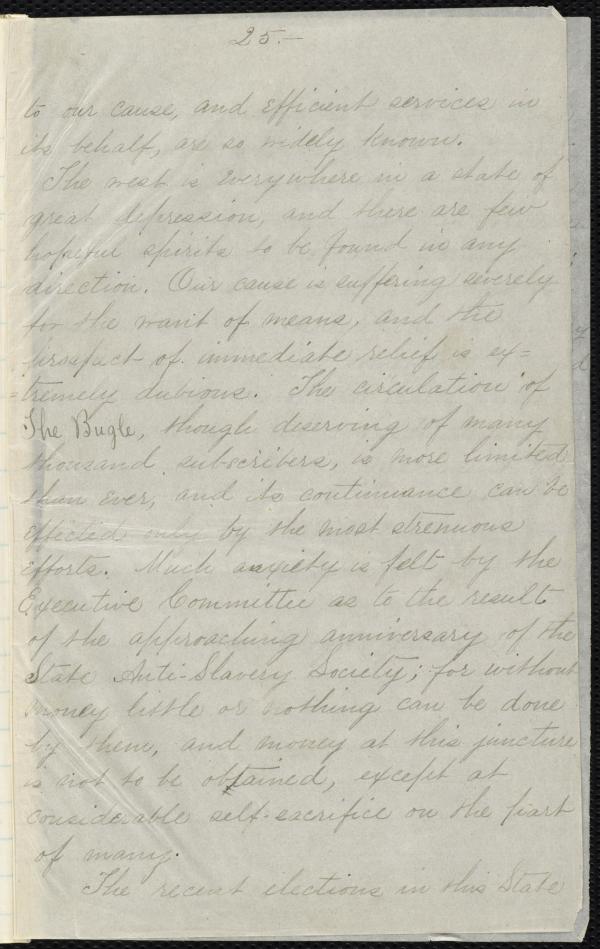 25.—
to our cause, and efficient services in
its behalf, are so widely known.
The west is everywhere in a state of
great depression, and there are few
hopeful spirits to be found in any
direction. Our cause is suffering severely
for the want of means, and the
prospect of immediate relief is ex=
=tremely dubious. The circulation of
The Bugle, though deserving of many
thousand subscribers, is more limited
than ever, and its continuance can be
effected only by the most strenuous
efforts. Much anxiety is felt by the
Executive Committee as to the result
of the approaching anniversary of the
State Anti-Slavery Society; for without
money little or nothing can be done
by them, and money at this juncture
is not to be obtained, except at
considerable self-sacrifice on the part
of many.
The recent elections in this State